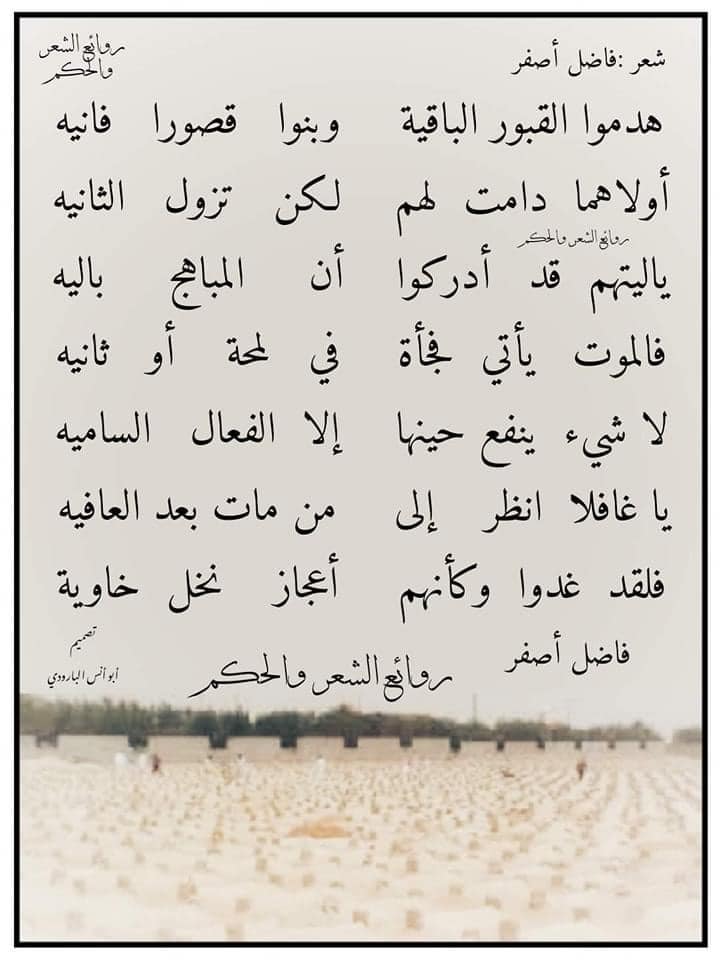 شعر :فاضل أصفر
روائع الشعر
والحكم
هدموا القبور الباقية وبنوا قصورا فانيه
أولاهما دامت لهم لكن تزول الثانيه
روائع الشعر والحكم
ياليتهم قد أدركوا أن المباهج باليه
فالموت يأتي فجأة في لمحة أو ثانيه
لا شيء ينفع حينها إلا الفعال الساميه
يا غافلا انظر إلى من مات بعد العافيه
فلقد غدوا وكأنهم أعجاز نخل خاوية
فاضل أصفر
روائع الشعر والحكم
تصميم
أبو أنس البارودي